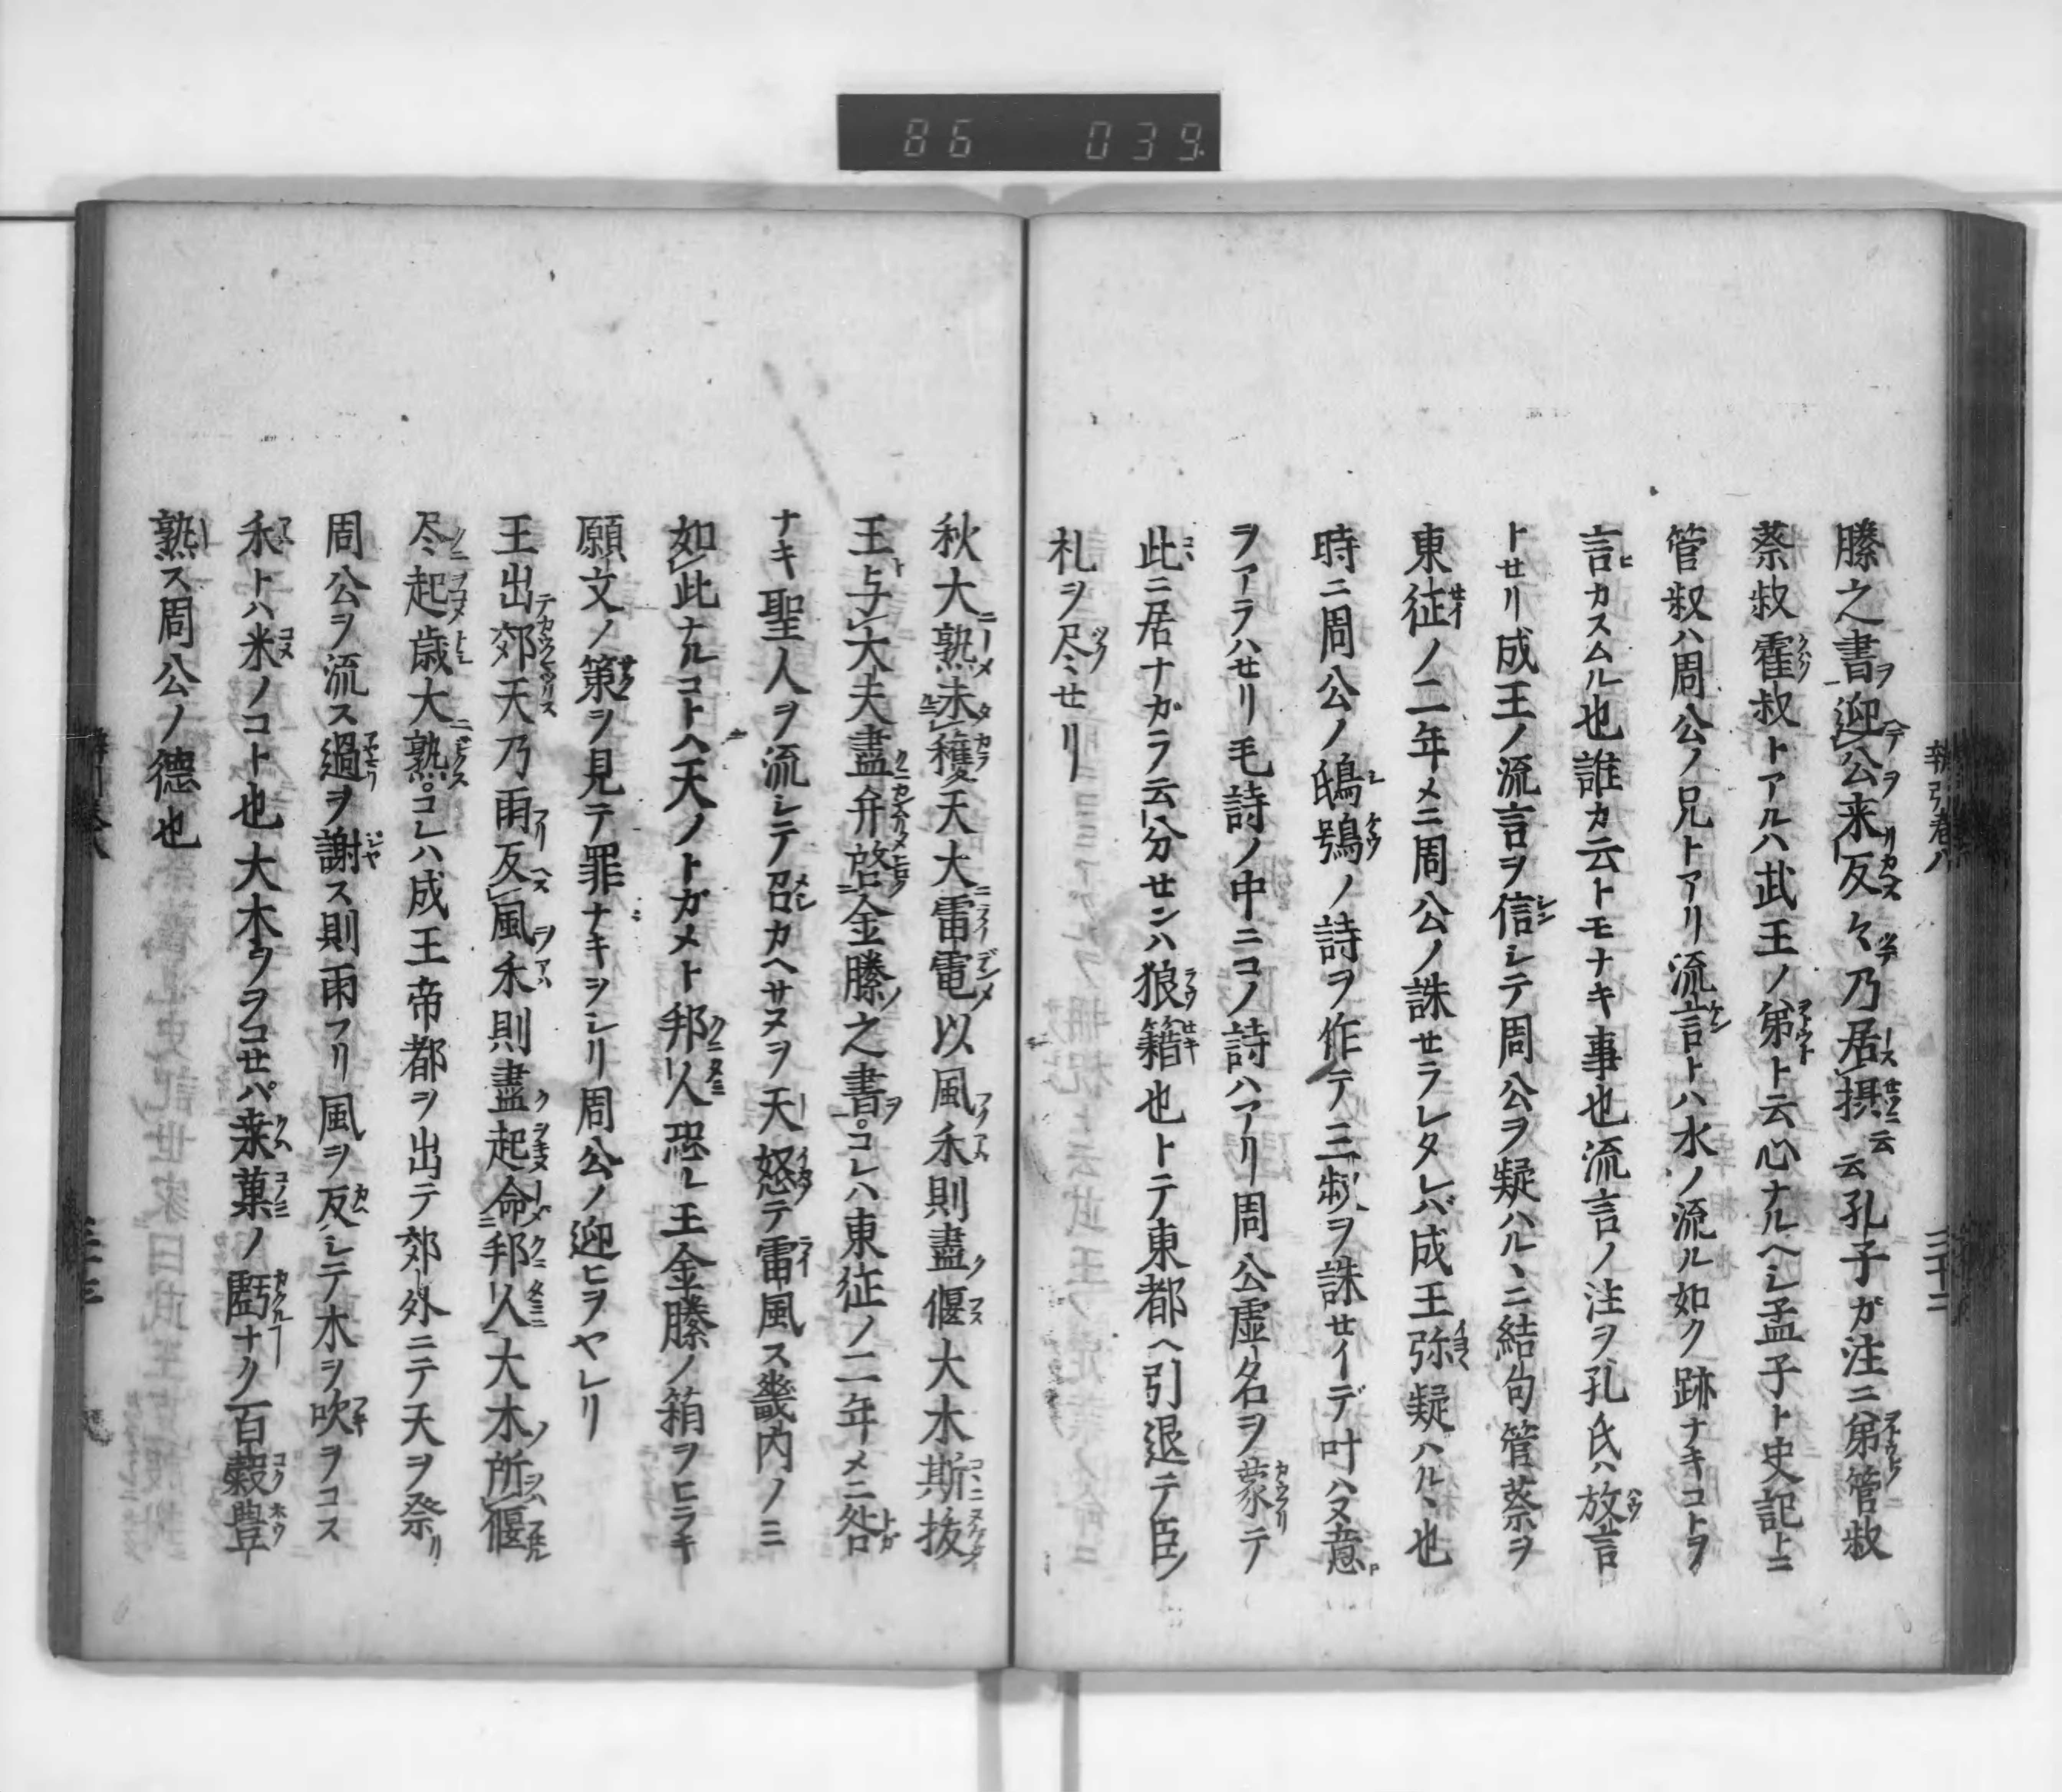 86 039
滕之書迎公来反々乃居摂云云孔子ガ注ニ弟管叔
蔡叔霍叔トアルハ武王ノ弟ト云心ナルヘシ孟子ト史記トニ
管叔ハ周公ノ兄トアリ流言トハ水ノ流ル如ク跡ナキコトヲ
言カスムル也誰カ云トモナキ事也流言ノ注ヲ孔氏ハ放言
トセリ成王ノ流言ヲ信シテ周公ヲ疑ハルヽニ結句管蔡ヲ
東征ノ二年メニ周公ノ誅セラレタレバ成王弥疑ハルヽ也
時ニ周公ノ鴟鴞ノ詩ヲ作テ三叔ヲ誅セイデ叶ハヌ意
ヲアラハセリ毛詩ノ中ニコノ詩ハアリ周公虚名ヲ蒙テ
此ニ居ナガラ云分センハ狼籍也トテ東都ヘ引退テ臣ノ
礼ヲ尽セリ
秋大熟未穫天大雷電以風禾則盡偃大木斯抜
王与大夫盡弁啓金滕之書。コレハ東征ノ二年メニ咎
ナキ聖人ヲ流シテ召カヘサヌヲ天怒テ雷風ス畿内ノミ
如此ナルコトヘ天ノトガメト邦人恐レ王金滕ノ箱ヲヒラキ
願文ノ策ヲ見テ罪ナキヲシリ周公ノ迎ヒヲヤレリ
王出郊天乃雨反風禾則盡起命邦人大木所偃
尽起歳大熟。コレハ成王帝都ヲ出テ郊外ニテ天ヲ祭リ
周公ヲ流ス過ヲ謝ス則雨フリ風ヲ反シテ木ヲ吹ヲコス
禾トハ米ノコト也大木ヲヲコセバ菓ノ虧ナク百穀豊
熟ス周公ノ徳也